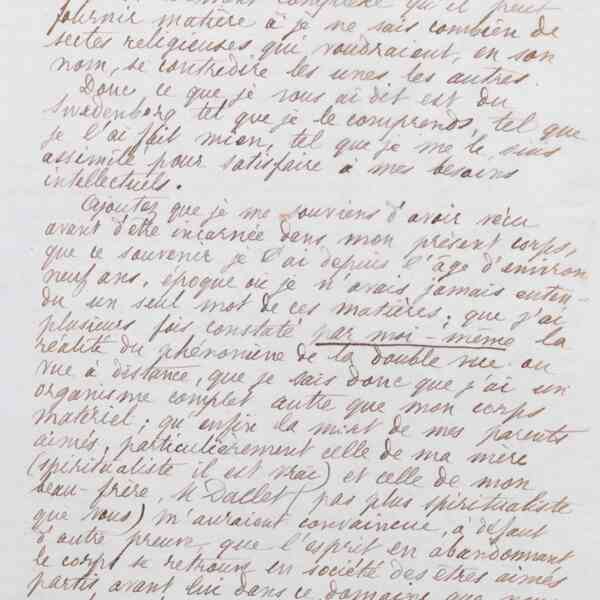 complexe qu'il peut
fournir matière à je ne sais combien de
sectes religieuses qui voudraient, en son
nom, se contredire les unes les autres.
Donc ce que je vous ai dit est du
Swedenborg tel que je le comprends, tel que
je l'ai fait mien, tel que je me le suis
assimilé pour satisfaire à mes besoins
intellectuels.
Ajoutez que je me souviens d'avoir vécu
avant d'être incarnée dans mon présent corps,
que ce souvenir je l'ai depuis l'âge d'environ
neuf ans, époque où je n'avais jamais enten-
du un seul mot de ces matières; que j'ai
plusieurs fois constaté par moi-même la
réalité du phénomène de la double vue ou
vue à distance, que je sais donc que j'ai un
organisme complet autre que mon corps
matériel; qu'enfin la mort de mes parents
aimés, particulièrement celle de ma mère
(spiritualiste il est vrai) et celle de mon
beau-frère, M Dallet (pas plus spiritualiste
que vous) m'auraient convaincue, à défaut
d'autre preuve, que l'esprit en abandonnant
le corps se retrouve en société des êtres aimés
partis avant lui dans ce domaine que nous